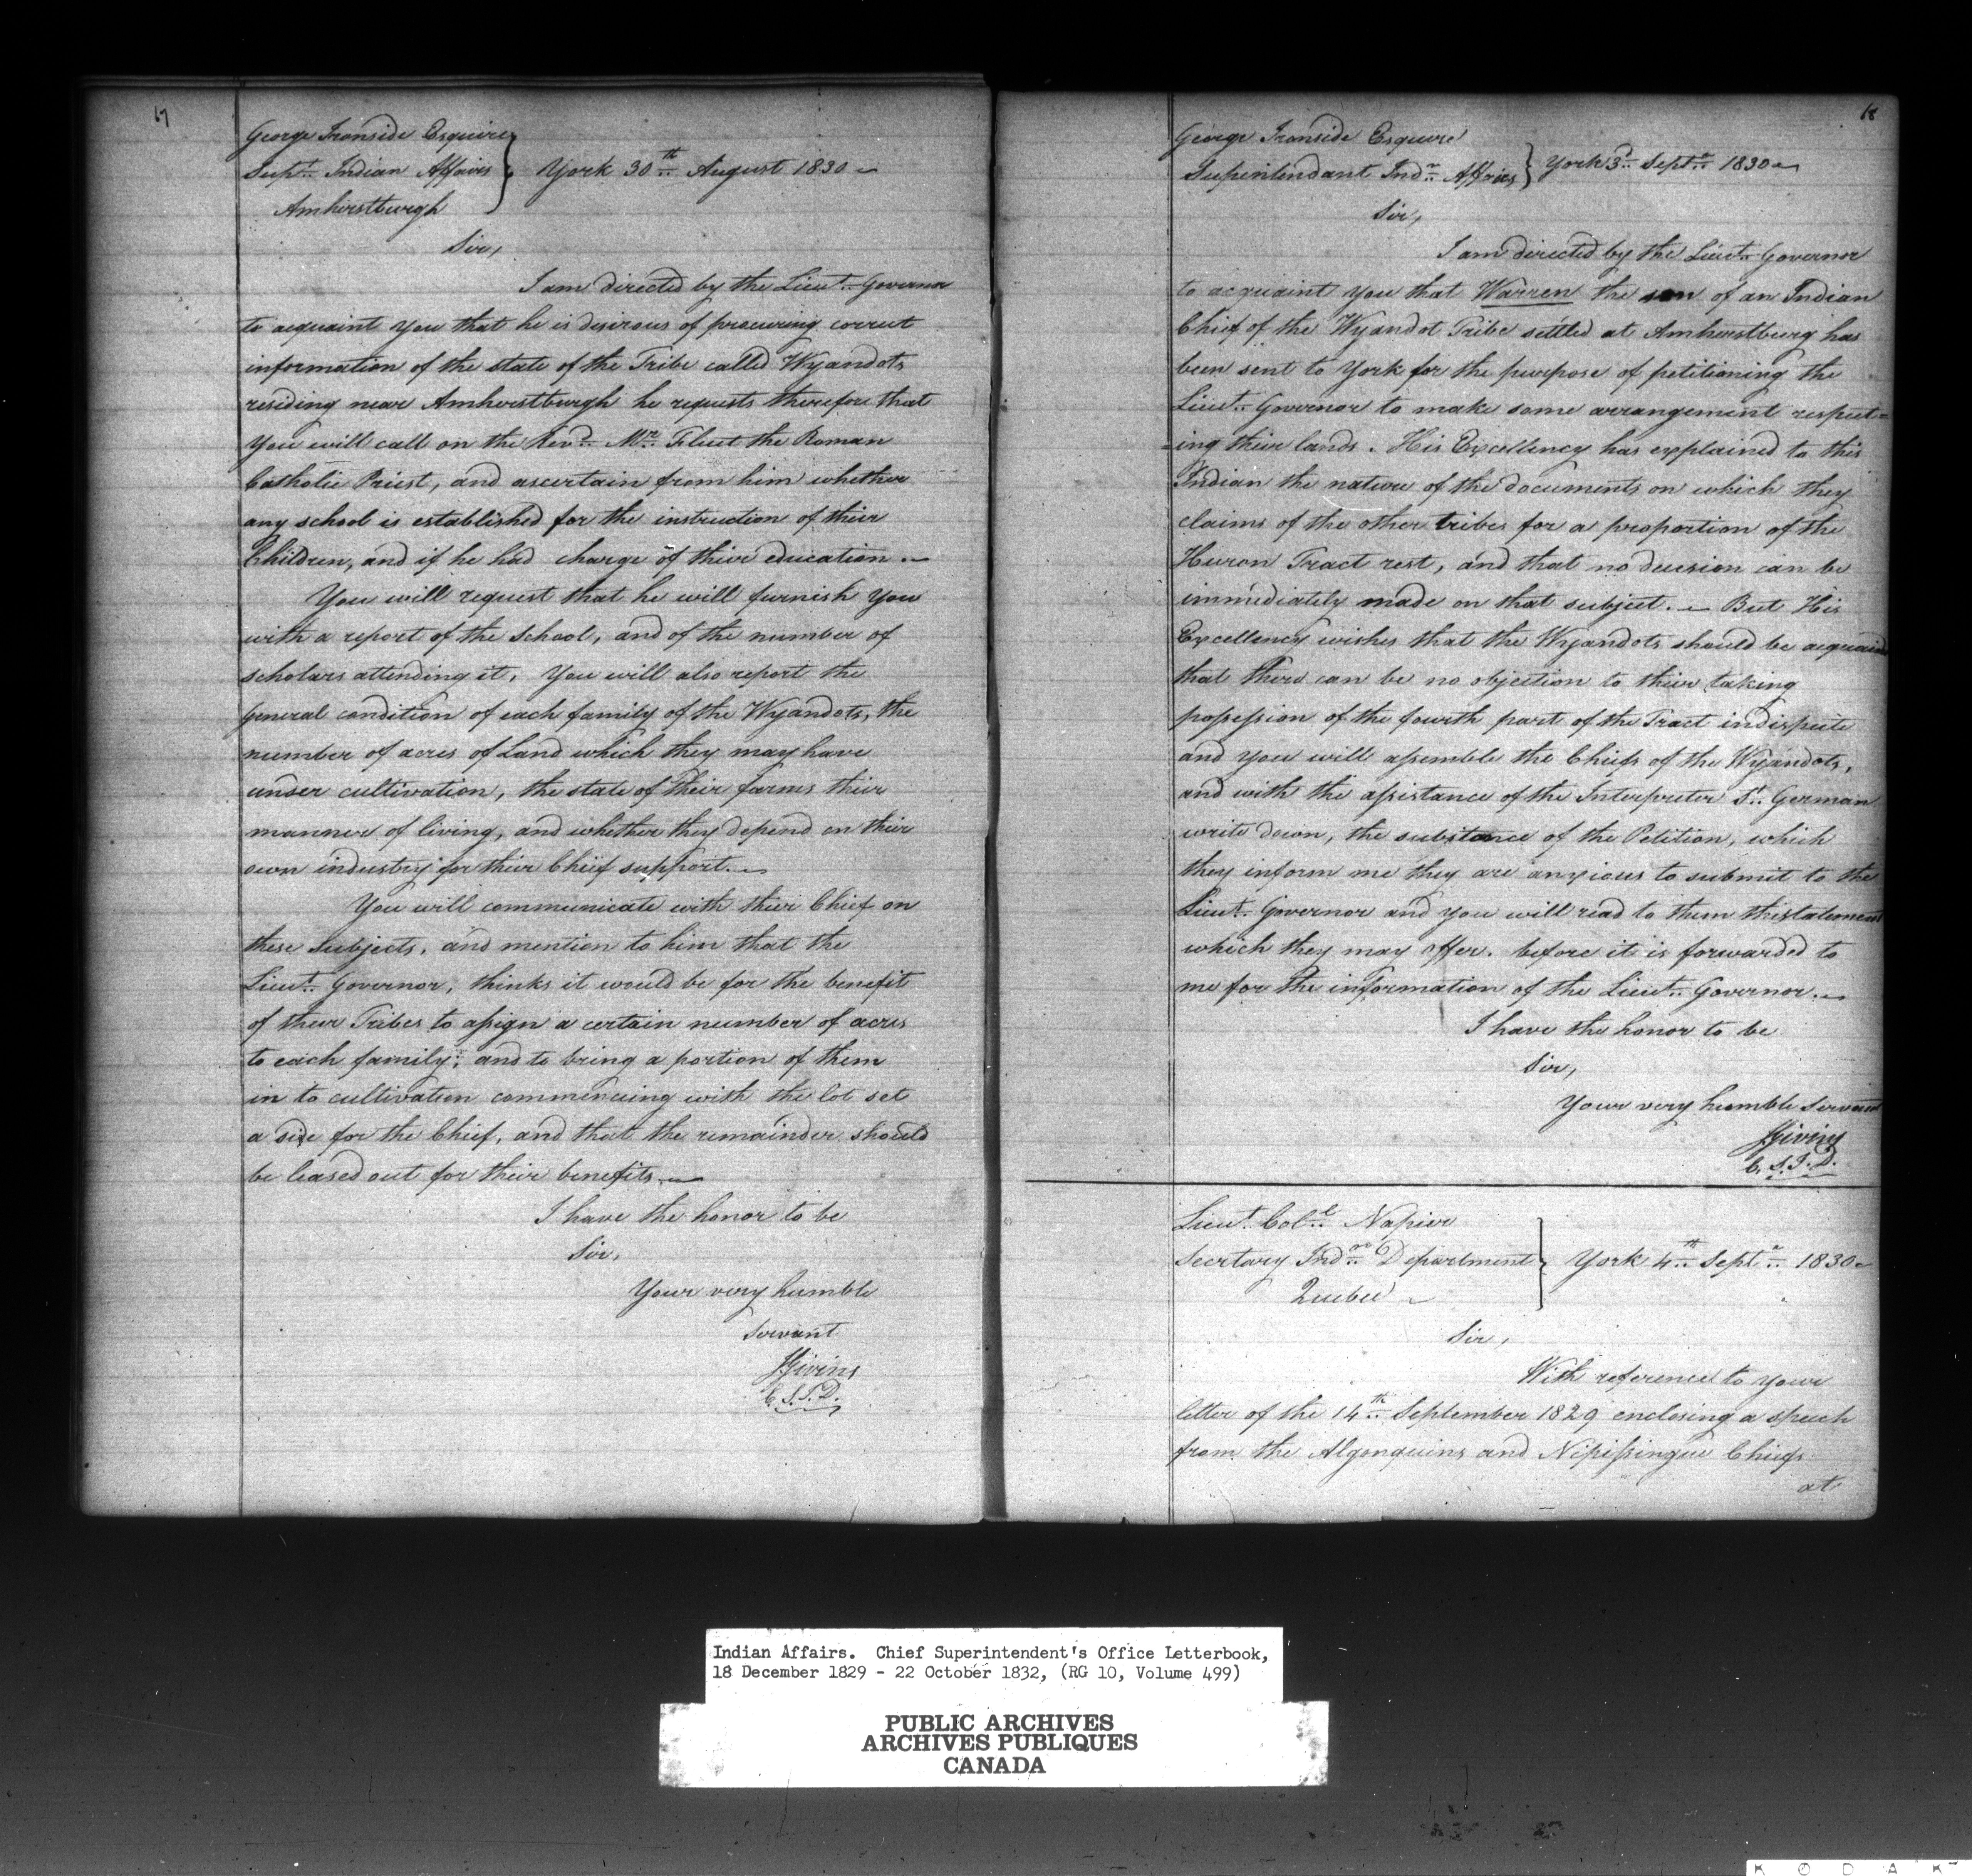 17
George Ironside Esquire
Supt. Indian Affairs } York 30th August 1830
Amherstburgh
Sir,
I am directed by the Lieut. Governor
to acquaint you that he is desirous of procuring correct
information of the state of the Tribe called Wyandots
residing near Amherstburgh he requests therefore that
you will call on the Revd. Mr. Fluet the Roman
Catholic Priest, and ascertain from him whether
any school is established for the instruction of their
Children, and if he had charge of their education.
You will request that he will furnish you
with a report of the school, and of the number of
scholars attending it. You will also report the
general condition of each family of the Wyandots, the
number of acres of Land which they may have
under cultivation, the state of their farms their
manner of living, and whether they depend on their
own industry for their Chief support.
You will communicate with their Chief on
these subjects, and mention to him that the
Lieut. Governor, thinks it would be for the benefit
of their Tribes to assign a certain number of acres
to each family; and to bring a portion of them
in to cultivation commencing with the lot set
a side for the Chief, and that the remainder should
be leased out for their benefits.
I have the honor to be
Sir,
Your very humble
servant
JGivins
C.S.I.D.
18
George Ironside Esquire
Supintendant Indn. Affairs } York 3d. Septr. 1830
Sir,
I am directed by the Lieut. Governor
to acquaint you that Warren the son of an Indian
Chief of the Wyandot Tribe settled at Amherstburg has
been sent to York for the purpose of petitioning the
Lieut. Governor to make some arrangement respect=
=ing their lands. His Excellency has explained to this
Indian the nature of the documents on which they
claims of the other tribes for a proportion of the
Huron Tract rest, and that no decision can be
immediately made on that subject. — But His
Excellency wishes that the Wyandots should be acquaind
that there can be no objection to their taking
possession of the fourth part of the Tract in dispute
and you will assemble the Chiefs of the Wyandots,
and with the assistance of the Interpreter St. German
write down, the substance of the Petition, which
they inform me they are anxious to submit to the
Lieut. Governor and you will read to them the statement
which they may offer. before it is forwarded to
me for the information of the Lieut. Governor.
I have the honor to be
Sir,
Your very humble Servant
JGivins
C.S.I.D.
Lieut. Coll. Napier
Secrtary Indn. Department } York 4th Septr. 1830
Quebec
Sir,
With reference to your
letter of the 14th September 1829 enclosing a speech
from the Algonquins and Nipissingue Chiefs
at
Indian Affairs. Chief Superintendent's Office Letterbook,
18 December 1829 - 22 October 1832, (RG 10, Volume 499)
PUBLIC ARCHIVES
ARCHIVES PUBLIQUES
CANADA
KODAK